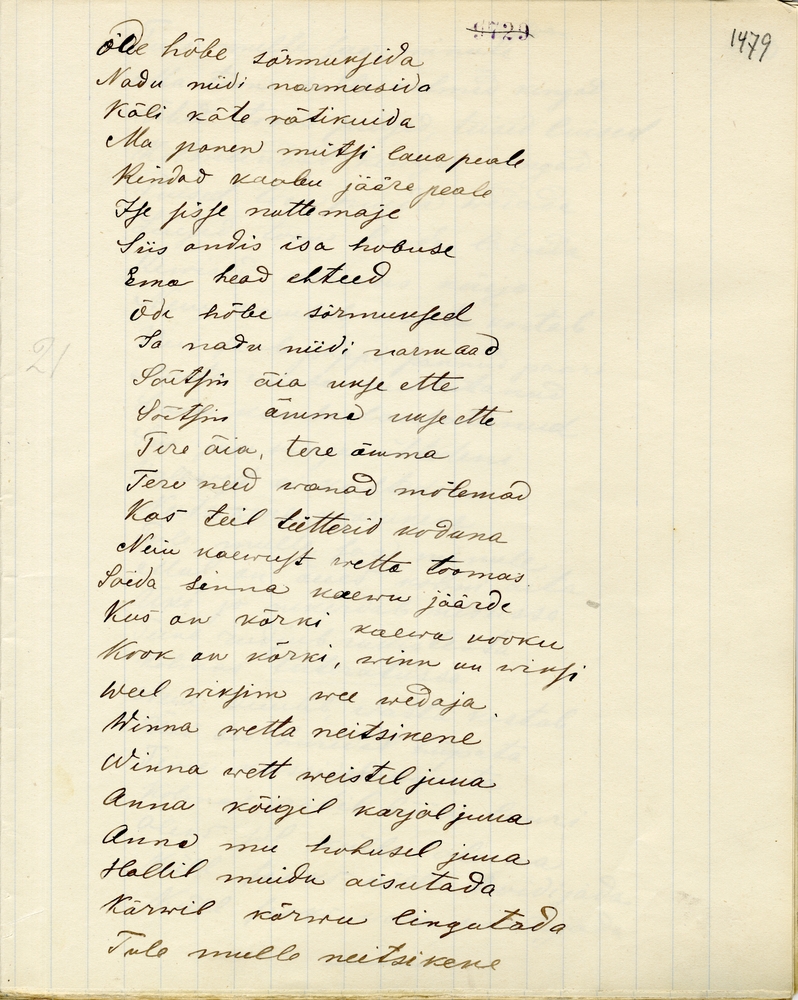 9729
1479
õde hõbe sõrmuksida
Nadu niidi narmasida
Käli käte rätikuida
Ma panen mütsi laua peale
Kindad kaabu jääre peale
Ise sisse nuttemaje
Siis andis isa hobuse
Ema head ehteed
Õde hõbe sõrmuksed
Ja nadu niidi narmaad
21
Sõitsin äia ukse ette
Sõitsin ämma ukse ette
Tere äia, tere ämma
Tere need wanad mõlemad
Kas teil tütterid koduna
Neiu kaewust wetta toomas
Sõida sinna kaewu jäärde
Kus on kõrki kaewu kooku
Kook on kõrki, winn on wiksi
Weel wiksim wee wedaja
Winna wetta neitsikene
Winna wett weistel juua
Anna kõigil karjal juua
Anna mu hobusel juua
Hallil muidu aisutada
Kõrwil kõrwu lingutada
Tule mulle neitsikene